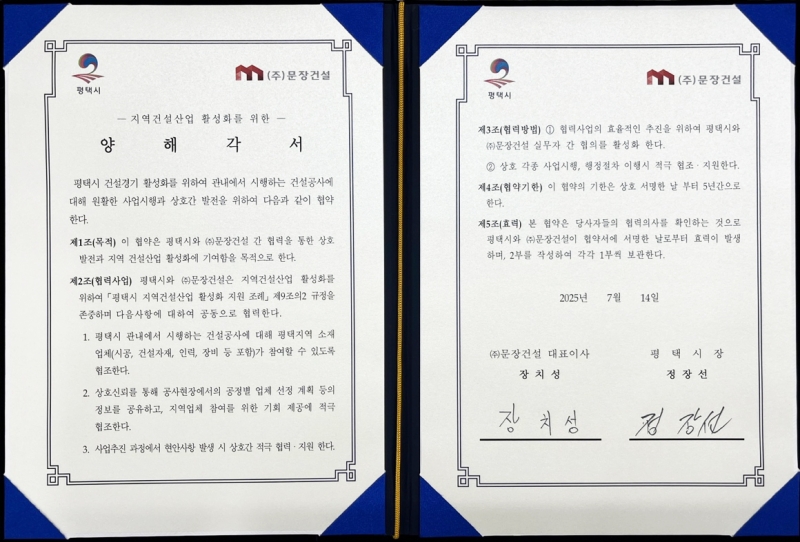 평택시
(주)문장건설
— 지역건설산업 활성화를 위한 —
양 해 각 서
평택시 건설경기 활성화를 위하여 관내에서 시행하는 건설공사에
대해 원활한 사업시행과 상호간 발전을 위하여 다음과 같이 협약
한다.
제1조(목적) 이 협약은 평택시와 ㈜문장건설 간 협력을 통한 상호
발전과 지역 건설산업 활성화에 기여함을 목적으로 한다.
제2조(협력사업) 평택시와 ㈜문장건설은 지역건설산업 활성화를
위하여「평택시 지역건설산업 활성화 지원 조례」제9조의2 규정을
존중하며 다음사항에 대하여 공동으로 협력한다.
1. 평택시 관내에서 시행하는 건설공사에 대해 평택지역 소재
업체(시공, 건설자재, 인력, 장비 등 포함)가 참여할 수 있도록
협조한다.
2. 상호신뢰를 통해 공사현장에서의 공정별 업체 선정 계획 등의
정보를 공유하고, 지역업체 참여를 위한 기회 제공에 적극
협조한다.
3. 사업추진 과정에서 현안사항 발생 시 상호간 적극 협력·지원 한다.
평택시
(주)문장건설
제3조(협력방법) ① 협력사업의 효율적인 추진을 위하여 평택시와
㈜문장건설 실무자 간 협의를 활성화 한다.
② 상호 각종 사업시행, 행정절차 이행시 적극 협조·지원한다.
제4조(협약기한) 이 협약의 기한은 상호 서명한 날 부터 5년간으로
한다.
제5조(효력) 본 협약은 당사자들의 협력의사를 확인하는 것으로
평택시와 ㈜문장건설이 협약서에 서명한 날로부터 효력이 발생
하며, 2부를 작성하여 각각 1부씩 보관한다.
2025년 7월 14일
㈜문장건설 대표이사 평 택 시 장
장 치 성 정 장 선
장 치 성 정 장선